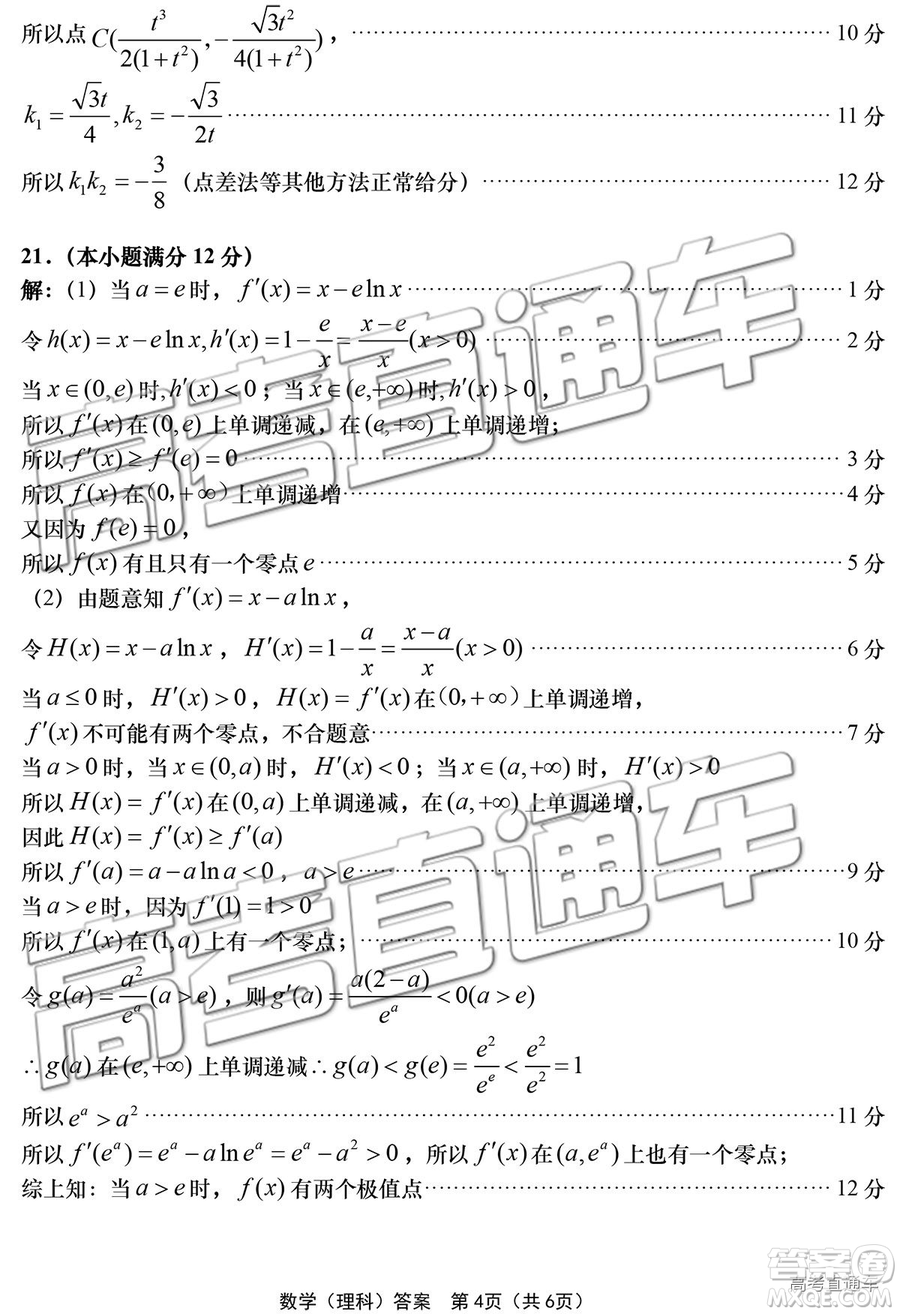 所以点 C(t³/(2(1+t²)), -√3t²/(4(1+t²))), ………… 10 分
k₁ = √3t/4, k₂ = -√3/(2t) ………… 11 分
所以 k₁k₂ = -3/8 (点差法等其他方法正常给分) ………… 12 分
21.(本小题满分 12 分)
解:(1) 当 a = e 时, f′(x) = x - e ln x ………… 1 分
令 h(x) = x - e ln x, h′(x) = 1 - e/x = (x-e)/x (x > 0) ………… 2 分
当 x∈(0,e) 时, h′(x) < 0 ; 当 x∈(e,+∞) 时, h′(x) > 0 ,
所以 f′(x) 在 (0,e) 上单调递减, 在 (e,+∞) 上单调递增;
所以 f′(x) ≥ f′(e) = 0 ………… 3 分
所以 f(x) 在 (0,+∞) 上单调递增 ………… 4 分
又因为 f(e) = 0 ,
所以 f(x) 有且只有一个零点 e ………… 5 分
(2) 由题意知 f′(x) = x - a ln x ,
令 H(x) = x - a ln x , H′(x) = 1 - a/x = (x-a)/x (x > 0) ………… 6 分
当 a ≤ 0 时, H′(x) > 0 , H(x) = f′(x) 在 (0,+∞) 上单调递增,
f′(x) 不可能有两个零点, 不合题意 ………… 7 分
当 a > 0 时, 当 x∈(0,a) 时, H′(x) < 0 ; 当 x∈(a,+∞) 时, H′(x) > 0
所以 H(x) = f′(x) 在 (0,a) 上单调递减, 在 (a,+∞) 上单调递增,
因此 H(x) = f′(x) ≥ f′(a)
所以 f′(a) = a - a ln a < 0 , a > e ………… 9 分
当 a > e 时, 因为 f′(1) = 1 > 0
所以 f′(x) 在 (1,a) 上有一个零点; ………… 10 分
令 g(a) = a²/eᵃ (a > e) , 则 g′(a) = a(2-a)/eᵃ < 0 (a > e)
∴ g(a) 在 (e,+∞) 上单调递减 ∴ g(a) < g(e) = e²/eᵉ < e²/e² = 1
所以 eᵃ > a² ………… 11 分
所以 f′(eᵃ) = eᵃ - a ln eᵃ = eᵃ - a² > 0 , 所以 f′(x) 在 (a,eᵃ) 上也有一个零点;
综上知: 当 a > e 时, f(x) 有两个极值点 ………… 12 分
数学(理科)答案 第 4页(共 6页)
高考直通车
高考直通车
答案圈
高考直通车
MXQE.COM